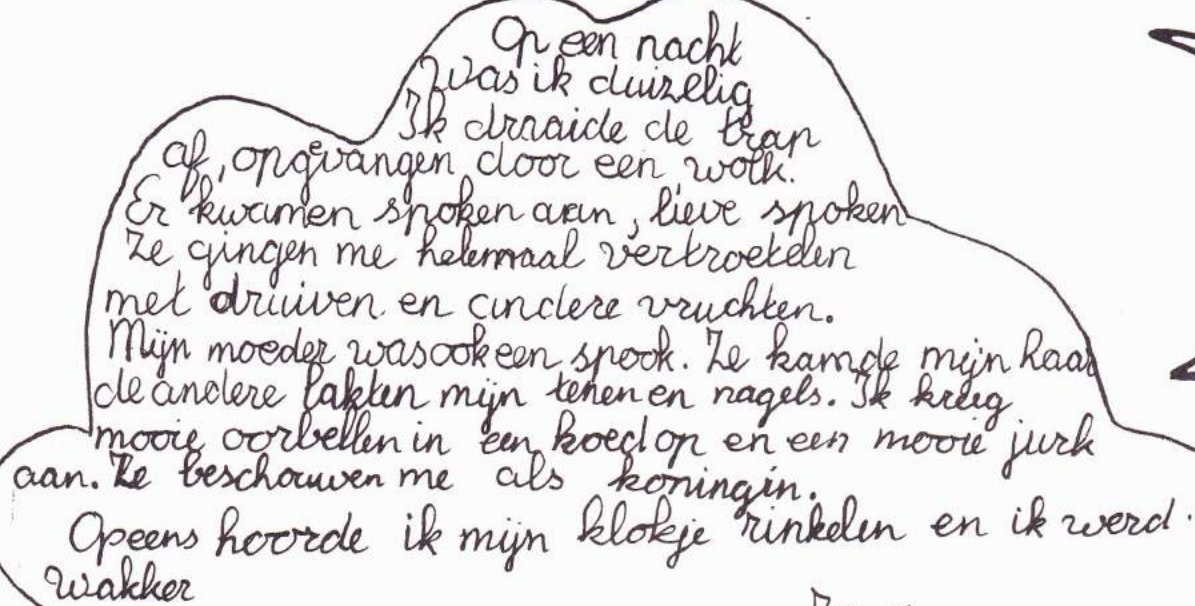 Op een nacht
Was ik duizelig
Ik draaide de trap
af, opgevangen door een wolk.
Er kwamen spoken aan, lieve spoken
Ze gingen me helemaal vertroetelen
met druiven en andere vruchten.
Mijn moeder was ook een spook. Ze kamde mijn haar
de andere lakten mijn tenen en nagels. Ik kreeg
mooie oorbellen in een hoed op en een mooie jurk
aan. Ze beschouwen me als koningin.
Opeens hoorde ik mijn klokje rinkelen en ik werd
wakker